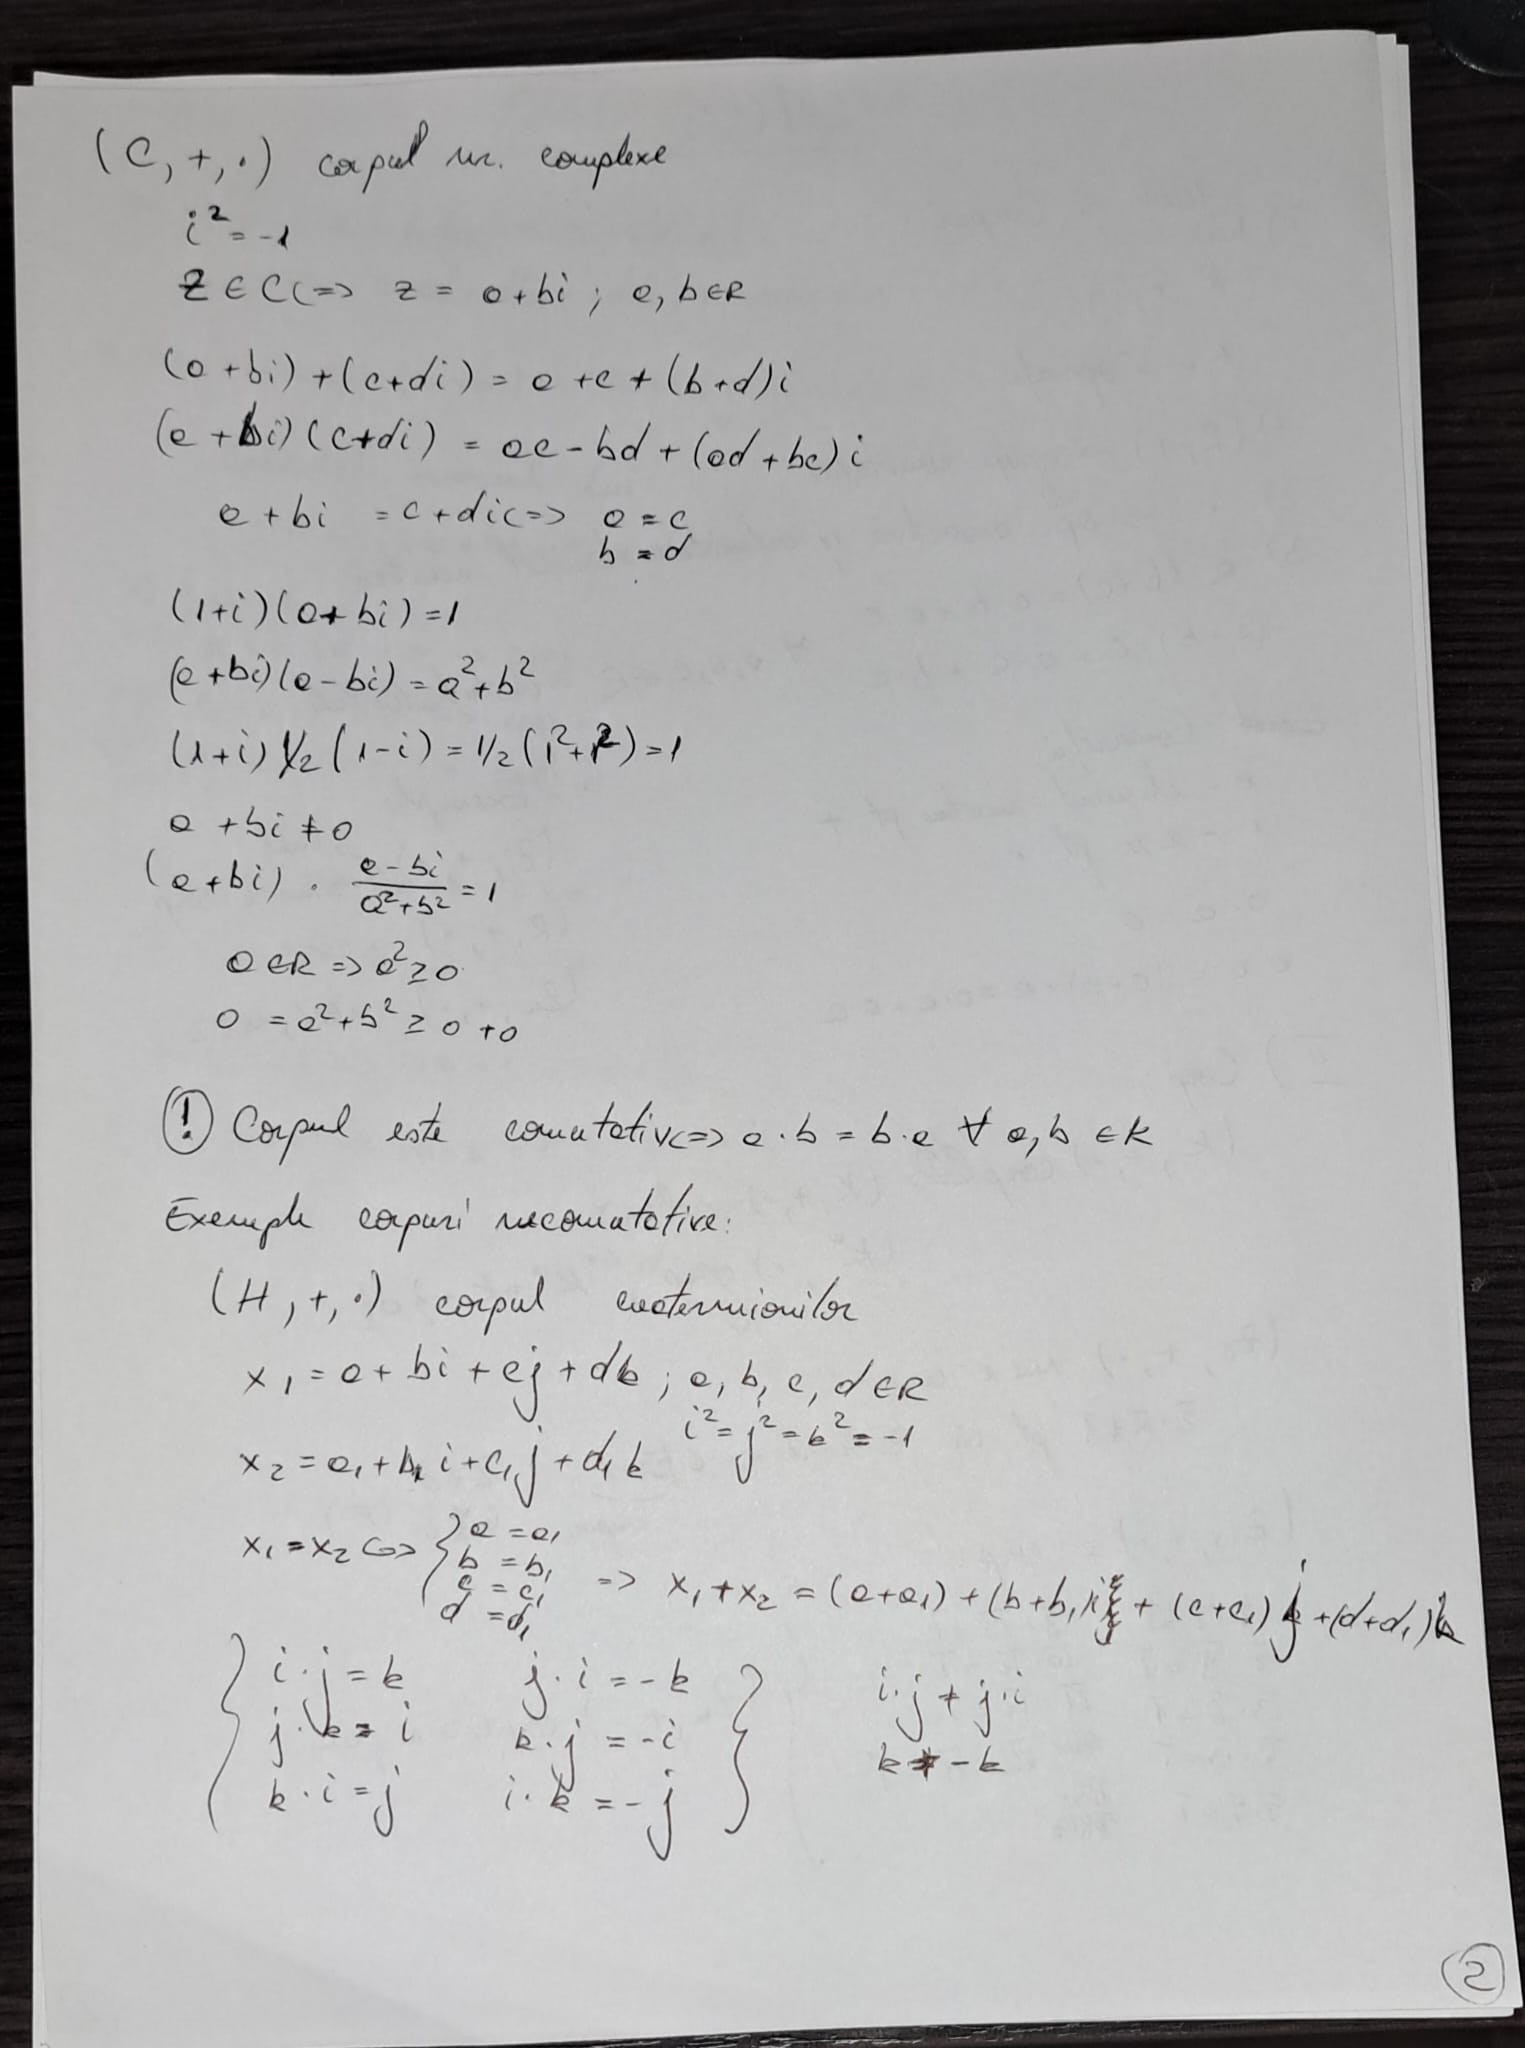 (C, +, ·) corpul nr. complexe
i² = -1
z ∈ C <=> z = a+bi ; a, b ∈ R
(a+bi)+(c+di) = a+c+(b+d)i
(a+bi)(c+di) = ac-bd+(ad+bc)i
a+bi = c+di <=> a = c
b = d
(1+i)(a+bi)=1
(a+bi)(a-bi)=a²+b²
(1+i) 1/2 (1-i) = 1/2 (1²+1²) = 1
a+bi ≠ 0
(a+bi) · (a-bi)/(a²+b²) = 1
a ∈ R => a² ≥ 0
0 = a²+b² ≥ 0+0
! Corpul este comutativ <=> a·b = b·a ∀ a, b ∈ K
Exemple corpuri necomutative:
(H, +, ·) corpul cuaternionilor
x₁ = a+bi+cj+dk ; a, b, c, d ∈ R
i² = j² = k² = -1
x₂ = a₁+b₁i+c₁j+d₁k
x₁ = x₂ <=> { a = a₁
b = b₁
c = c₁
d = d₁
=> x₁+x₂ = (a+a₁)+(b+b₁)i+(c+c₁)j+(d+d₁)k
{ i·j = k j·i = -k } i·j ≠ j·i
j·k = i k·j = -i k ≠ -k
k·i = j i·k = -j
2